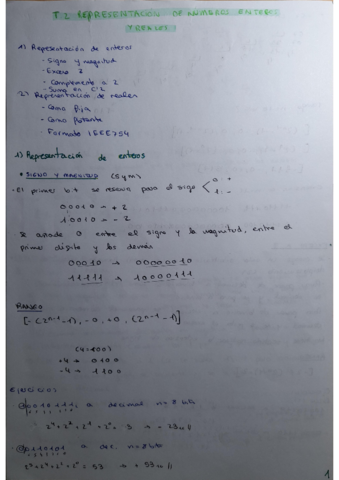 T.2 REPRESENTACIÓN DE NÚMEROS ENTER.
Y REALES
1) Representación de enteros
- Signo y magnitud
- Exceso Z
- Complemento a 2
- Suma en C'2
2) Representación de reales
- Coma fija
- Coma flotante
- Formato IEEE754
1) Representación de enteros
• SIGNO Y MAGNITUD (SyM)
- El primer bit se reserva para el signo 0 +
1 -
00010 → + 2
10010 → - 2
Se añade 0 entre el signo y la magnitud, entre el
primer dígito y los demás
00010 → 00000010
11111 → 10000111
RANGO
[-(2ⁿ⁻¹-1), -0, +0, (2ⁿ⁻¹-1)]
+4 → 0100
-4 → 1100
EJERCICIO:
a decimal n=8 bits
a dec. n=8 bits
1